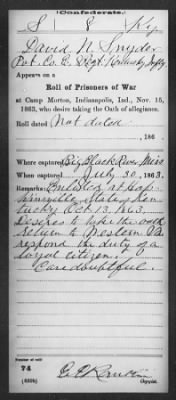 (Confederate.)
S 8 Ky
David N. Snyder
Pvt. Co. B. 8 Regt. Kentucky Infty
Appears on a
Roll of Prisoners of War
at Camp Morton, Indianapolis, Ind., Nov. 15,
1863, who desire taking the Oath of allegiance.
Roll dated Not dated
, 186 .
Where captured Big Black River Miss
When captured July 30, 1863.
Remarks: Enlisted at Hop-
kinsville State of Ken-
tucky Oct 13, 1863.
Desires to take the oath
return to Western
respond the duty of a
loyal citizen.
Case doubtful.
Number of roll:
74
(639b) Copyist.